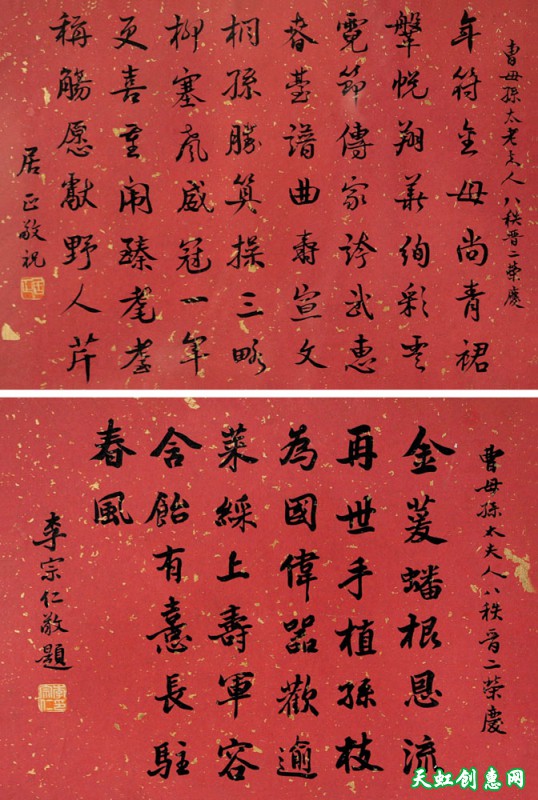 曹母孫太老夫人八秩晋二榮慶
年符金母尚青裙
鞶帨翔華絢彩雲
霓節傳家誇武惠
春臺譜曲壽宣文
桐孫勝算操三略
柳塞風威冠一軍
更喜重闈臻耄耋
稱觴愿獻野人芹
居正敬祝
曹母孫太夫人八秩晋二榮慶
金萲蟠根恩流
再世手植孫枝
為國偉器歡逾
萊綵上壽軍容
含飴有憙長駐
春風
李宗仁敬題
天虹创惠网